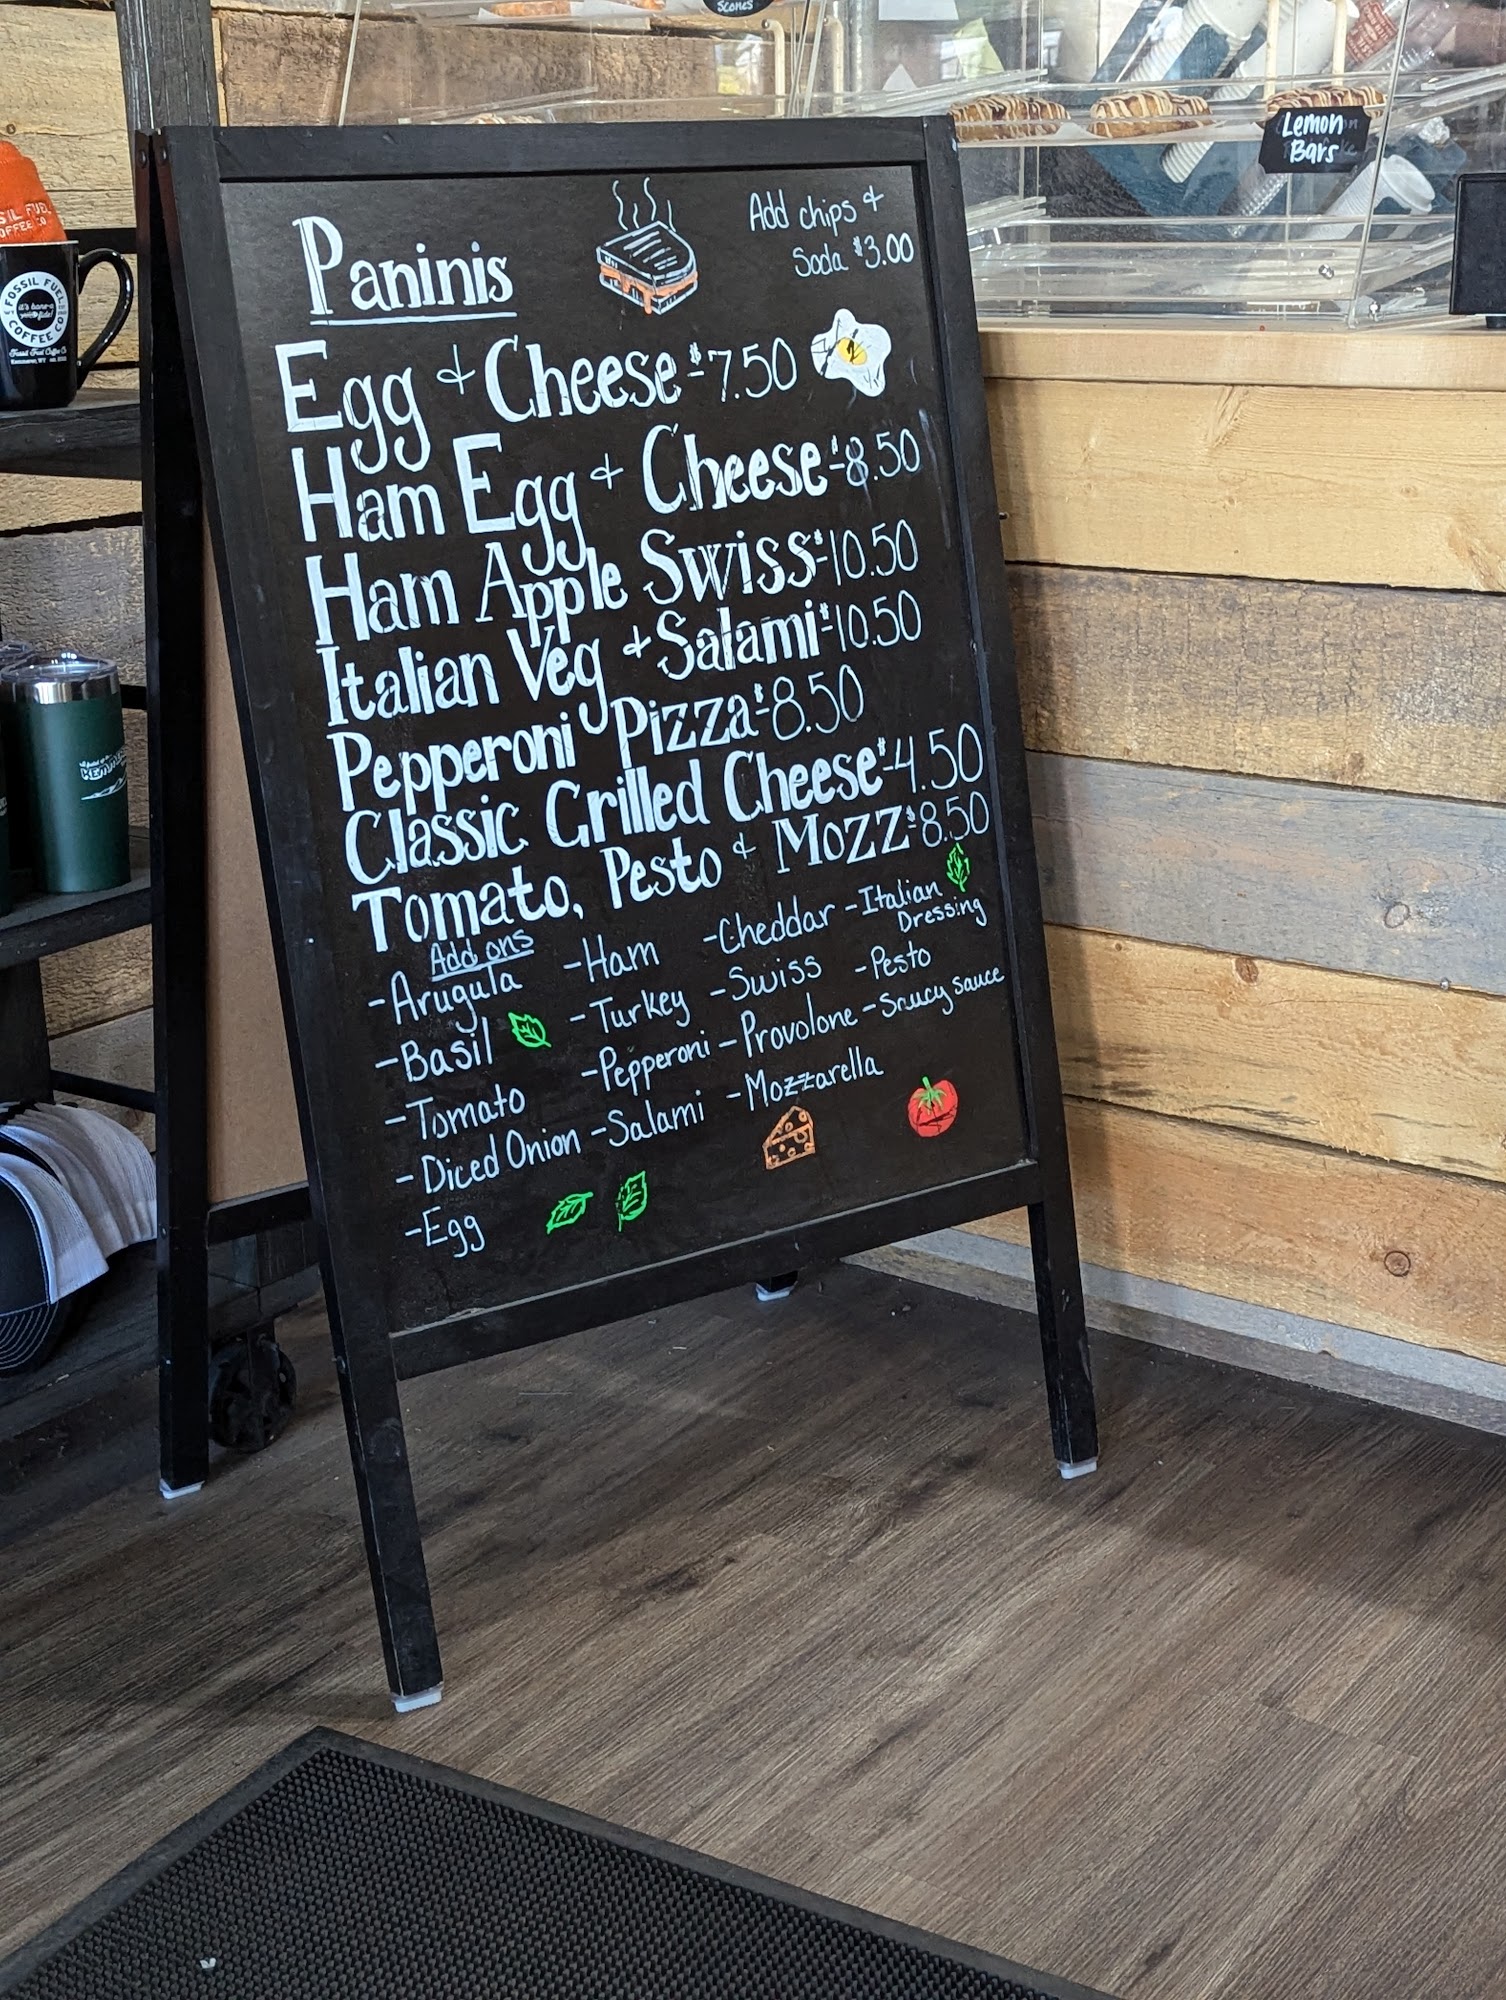 Scones
Lemon
Bars
Paninis
Add chips &
Soda $3.00
Egg & Cheese - $7.50
Ham Egg & Cheese - $8.50
Ham Apple Swiss - $10.50
Italian Veg & Salami - $10.50
Pepperoni Pizza - $8.50
Classic Grilled Cheese - $4.50
Tomato, Pesto & Mozz - $8.50
Add ons
- Arugula
- Basil
- Tomato
- Diced Onion
- Egg
- Ham
- Turkey
- Pepperoni
- Salami
- Cheddar
- Swiss
- Provolone
- Mozzarella
- Italian
Dressing
- Pesto
- Saucy sauce
SIL FUEL
OFFEE CO
FOSSIL FUEL
COFFEE CO
Fossil Fuel Coffee Co